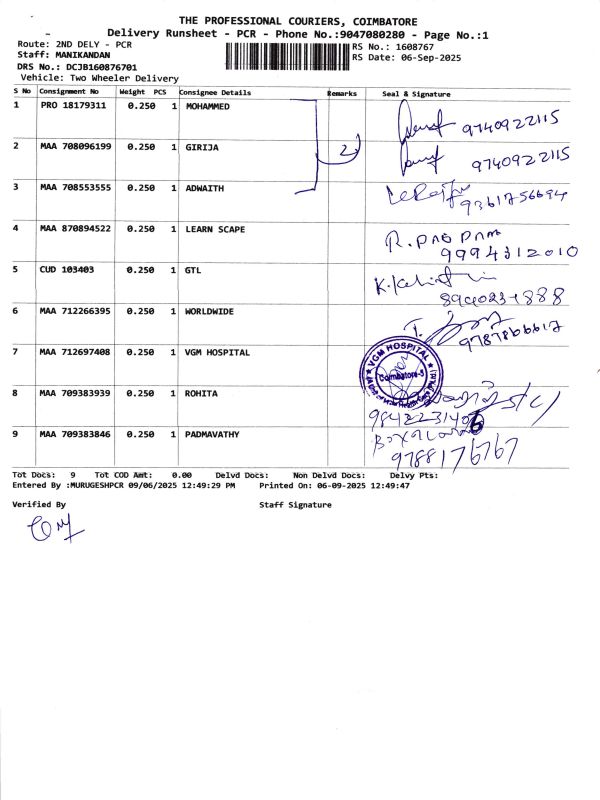 THE PROFESSIONAL COURIERS, COIMBATORE
Delivery Runsheet - PCR - Phone No.:9047080280 - Page No.:1
Route: 2ND DELY - PCR RS No.: 1608767
Staff: MANIKANDAN RS Date: 06-Sep-2025
DRS No.: DCJB160876701
Vehicle: Two Wheeler Delivery
S No Consignment No Weight PCS Consignee Details Remarks Seal & Signature
1 PRO 18179311 0.250 1 MOHAMMED 9740922115
2 MAA 708096199 0.250 1 GIRIJA 2 9740922115
3 MAA 708553555 0.250 1 ADWAITH 9361756694
4 MAA 870894522 0.250 1 LEARN SCAPE
9994312010
5 CUD 103403 0.250 1 GTL
6 MAA 712266395 0.250 1 WORLDWIDE
7 MAA 712697408 0.250 1 VGM HOSPITAL VGM HOSPITAL
Coimbatore-5
8 MAA 709383939 0.250 1 ROHITA
9 MAA 709383846 0.250 1 PADMAVATHY
9788176767
Tot Docs: 9 Tot COD Amt: 0.00 Delvd Docs: Non Delvd Docs: Delvy Pts:
Entered By :MURUGESHPCR 09/06/2025 12:49:29 PM Printed On: 06-09-2025 12:49:47
Verified By Staff Signature